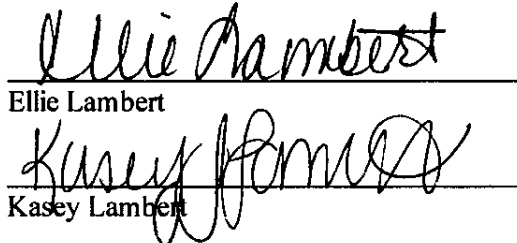 Ellie Lambert
Ellie Lambert
Kasey
Kasey Lambert